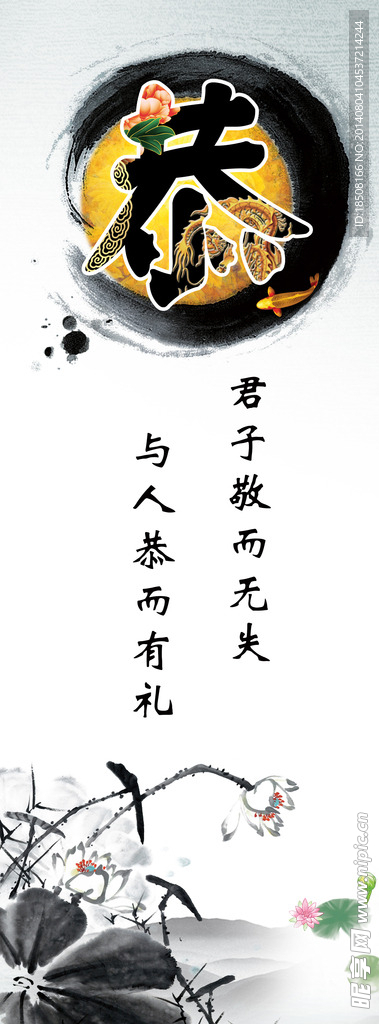 恭
君子敬而无失
与人恭而有礼
ID:18508166 NO:20140804104537214244
昵享网 www.nipic.cn